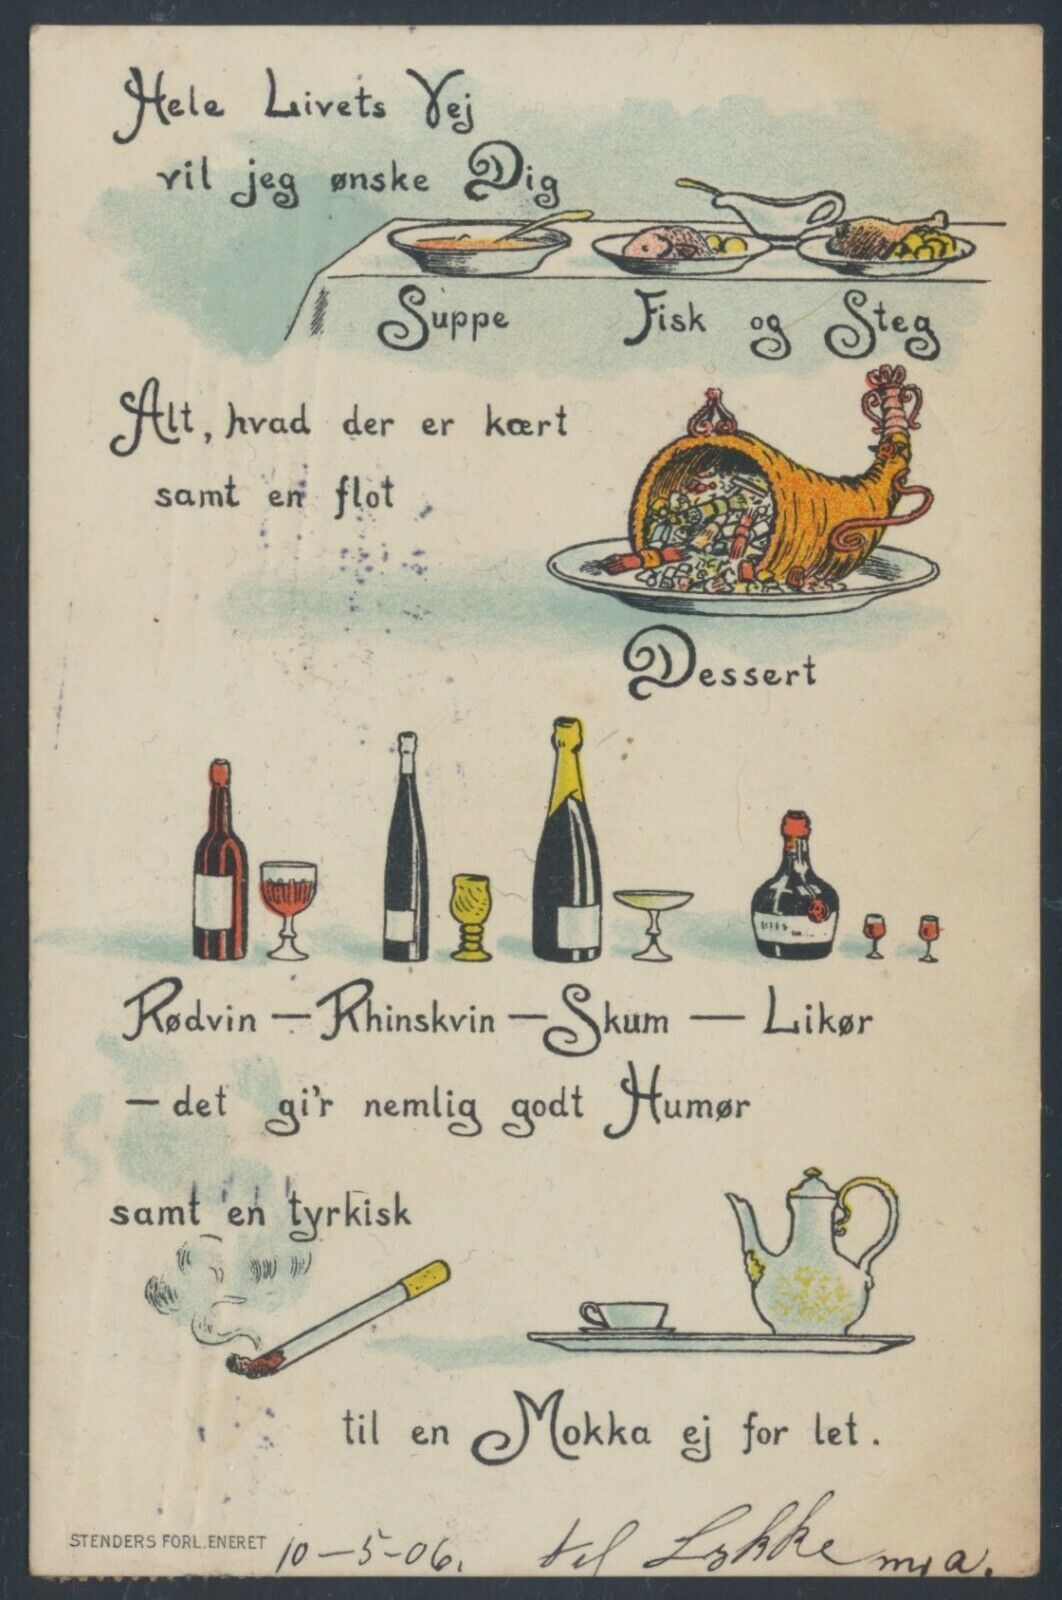 Hele Livets Vej
vil jeg ønske Dig
Suppe Fisk og Steg
Alt, hvad der er kært
samt en flot
Dessert
Rødvin — Rhinskvin — Skum — Likør
— det gi'r nemlig godt Humør
samt en tyrkisk
til en Mokka ej for let.
STENDERS FORL. ENERET
10-5-06. til Lykke m. a.